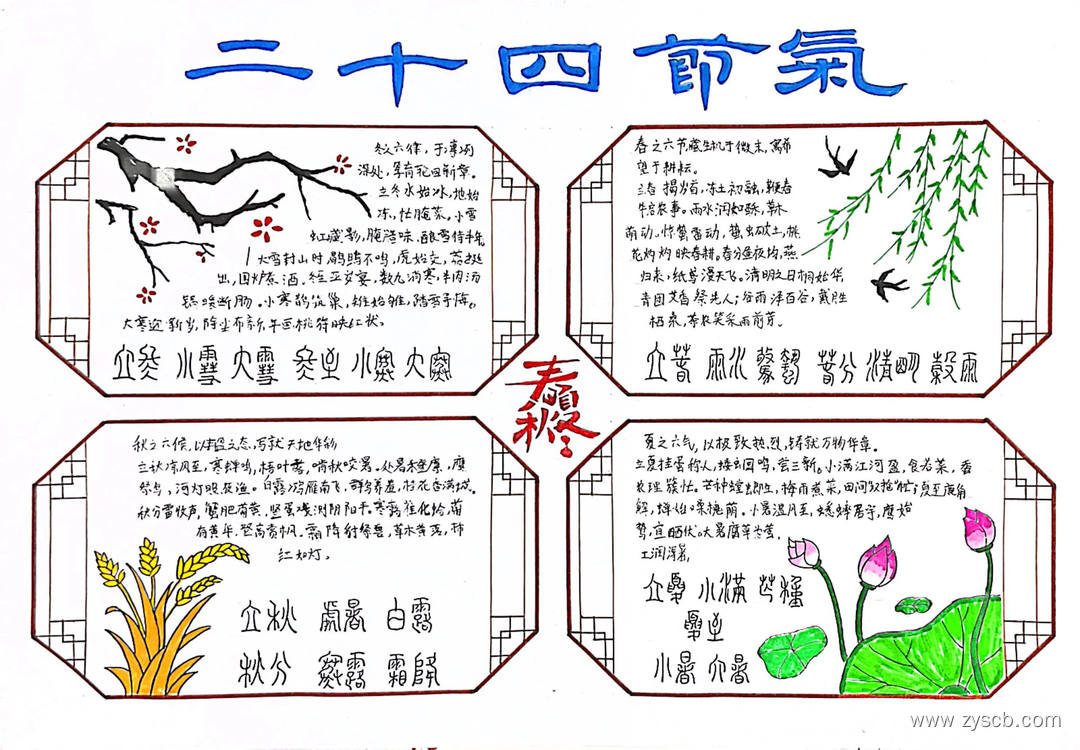 二十四節氣
冬之六候，于凛冽
深处，孕育轮回新章。
立冬水始冰，地始
冻，忙腌菜，小雪
虹藏影，腌腊味，酿雪待丰年
大雪封山时，鹖鴠不鸣，虎始交，荔挺
出，围炉煮酒。冬至亚岁宴，数九消寒，羊肉汤
小寒鹊筑巢，雉始雊，踏雪寻梅。
大寒迎新岁，除尘布新，年画桃符映红妆。
立冬 小雪 大雪 冬至 小寒 大寒
春之六节，藏生机于微末，寓希
望于耕耘。
立春揭岁首，冻土初融，鞭春
牛启农事。雨水润如酥，草木
萌动，惊蛰雷动，蛰虫破土，桃
花灼灼映春耕。春分昼夜均，燕
归来，纸鸢漫天飞。清明之日桐始华，
青团艾香祭先人；谷雨泽百谷，戴胜
栖桑，茶农笑采雨前芽。
立春 雨水 驚蟄 春分 清明 穀雨
春夏秋冬
秋之六候，以丰盈之态，写就天地华彩
立秋凉风至，寒蝉鸣，梧叶飘，啃秋咬暑。处暑禾登廪，鹰
祭鸟，河灯照夜渔。白露鸿雁南飞，群鸟养羞，桂花香满城。
秋分雷收声，蟹肥菊黄，竖蛋测阴阳平。寒露雀化蛤，菊
有黄华，登高赏帆。霜降豺祭兽，草木黄落，柿
红如灯。
立秋 處暑 白露
秋分 寒露 霜降
夏之六气，以极致热烈，铸就万物华章。
立夏挂蛋称人，蝼蝈鸣，尝三新。小满江河盈，食苦菜，蚕
农理簇忙。芒种螳螂生，梅雨煮菜，田间收抢忙；夏至鹿角
解，蝉始噪槐荫。小暑温风至，蟋蟀居宇，鹰始
鸷，宜晒伏。大暑腐草为萤，
土润溽暑，
立夏 小满 芒種
夏至
小暑 大暑
www.zyscb.com